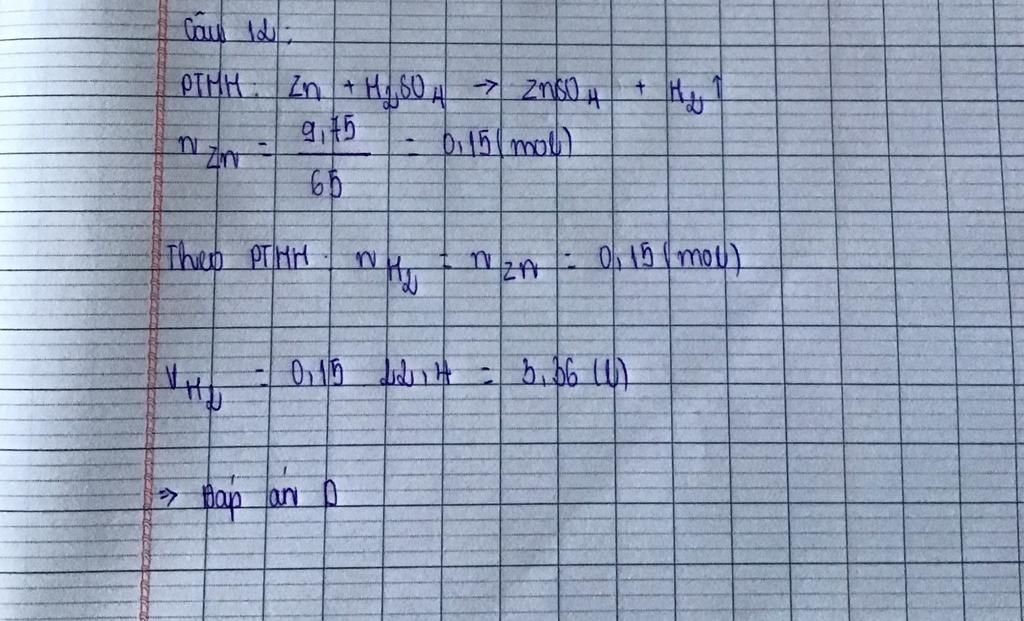 Câu 12:
PTHH: Zn + H₂SO₄ → ZnSO₄ + H₂↑
n Zn = 9,75 / 65 = 0,15 (mol)
Theo PTHH: n H₂ = n Zn = 0,15 (mol)
V H₂ = 0,15 . 22,4 = 3,36 (l)
⇒ Đáp án D